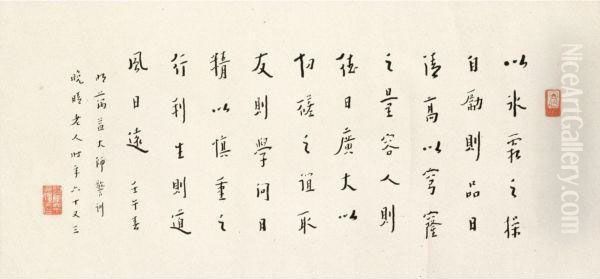 以氷霜之操
自勵則品日
清高以穹窿
之量容人則
德日廣大以
切磋之誼取
友則學問日
精以慎重之
行利生則道
風日遠 壬午春
明蕅益大師警訓
晚晴老人時年六十又三
NiceArtGallery.com